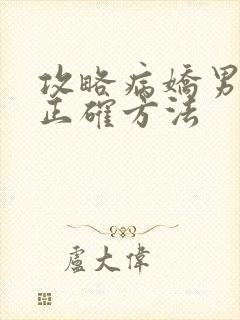 攻略病嬌男
正確方法
盧大偉